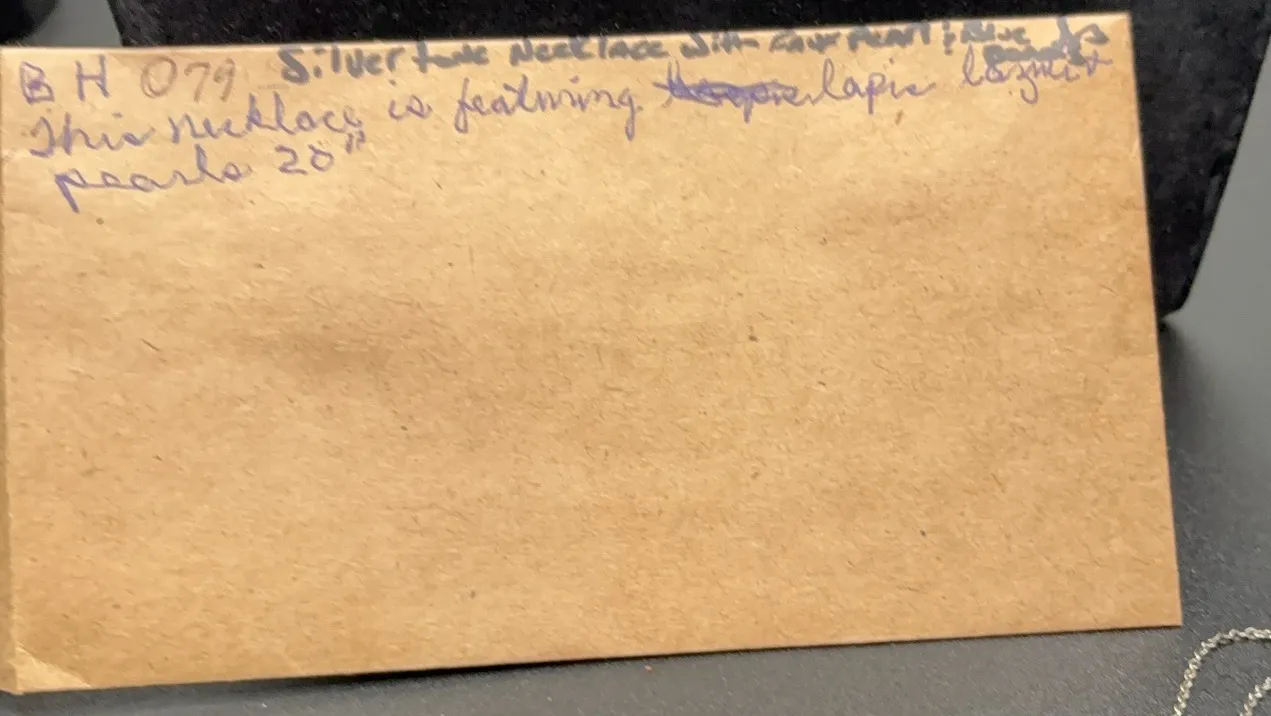 BH 079 Silver tone Necklace with Faux Pearl & Blue
This necklace is featuring lapis lazuit
pearls 20"